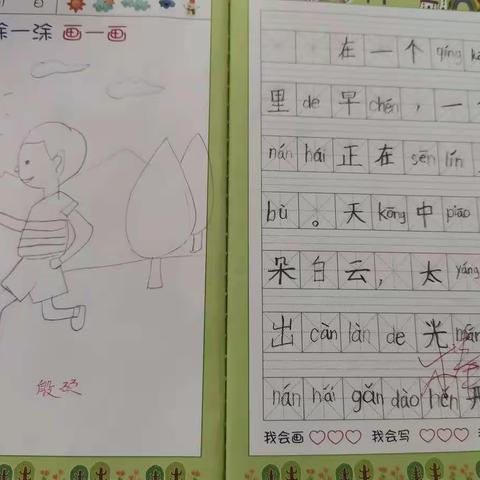 日
涂一涂 画一画
在一个qíng
里de早chén，一
nán hái正在sēn lín
bù。天kōng中piāo
朵白云，太yáng
出càn làn de光máng
nán hái gǎn dào hěn开
我会画♡♡♡ 我会写♡♡♡